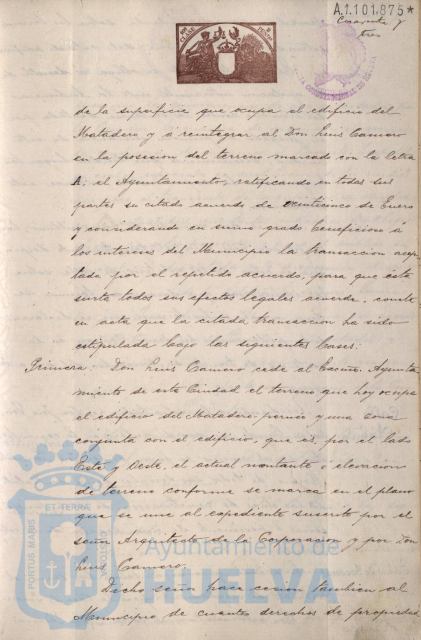 A.1.101.875*
Cuarenta y
tres
de la superficie que ocupa el edificio del
Matadero y á reintegrar al Don Luis Camero
en la posesion del terreno marcado con la letra
A; el Ayuntamiento, ratificando en todas sus
partes su citado acuerdo de veinticinco de Enero
y considerando en sumo grado beneficioso á
los intereses del Municipio la transaccion acep-
tada por el repetido acuerdo, para que ésta
surta todos sus efectos legales acuerda, conste
en acta que la citada transaccion ha sido
estipulada bajo las siguientes bases:
Primera: Don Luis Camero cede al Excmo. Ayunta-
miento de esta Ciudad el terreno que hoy ocupa
el edificio del Matadero y una zona
conjunta con el edificio, que es, por el lado
Este y Oeste, el actual montante ó elevacion
de terreno conforme se marca en el plano
que se une al expediente suscrito por el
señor Arquitecto de la Corporacion y por Don
Luis Camero.
Dicho señor hace cesion tambien al
Municipio de cuantos derechos de propiedad
PORTUS MARIS ET TERRÆ CUSTODIA
Ayuntamiento de
HUELVA